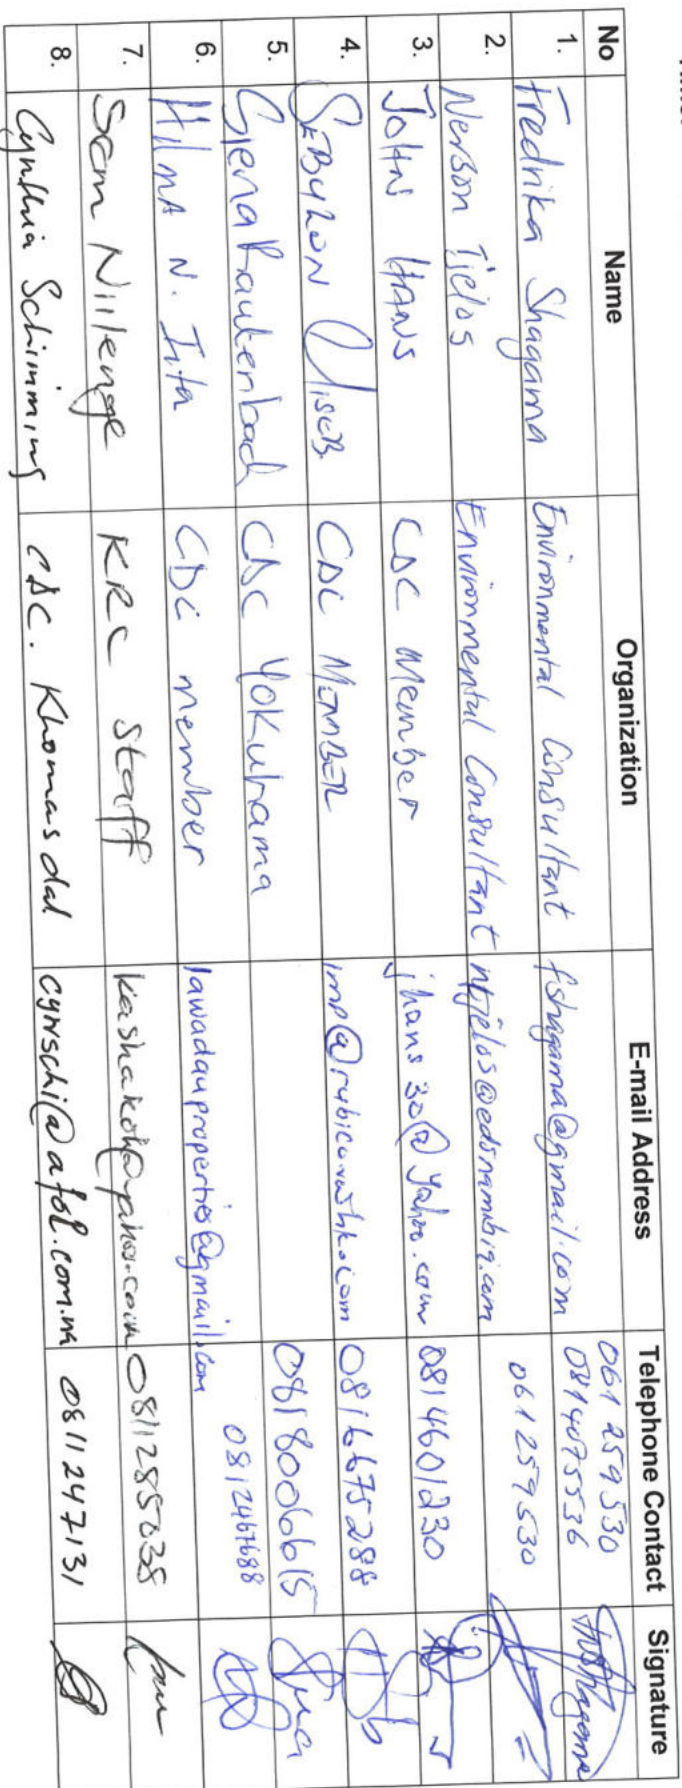 No Name Organization E-mail Address Telephone Contact Signature
1. Fredrika Shagama Environmental Consultant fshagama@gmail.com 061 259 530
0814075536
2. Nerson Tjelos Environmental Consultant ntjelos@edsnamibia.com 061 259530
3. JOHN HANS CDC Member jhans30@yahoo.com 0814601230
4. SEBULON CDC MEMBER 0816675288
5. Siena Rautenbach CDC Yokuhama 0818006615
6. HILMA N. Iita CDC member lawadauproperties@gmail.com 0812467688
7. Sam Niilenge KRC Staff 0811285038
8. Cynthia Schimming CDC. Khomasdal cynschi@afol.com.na 0811247131